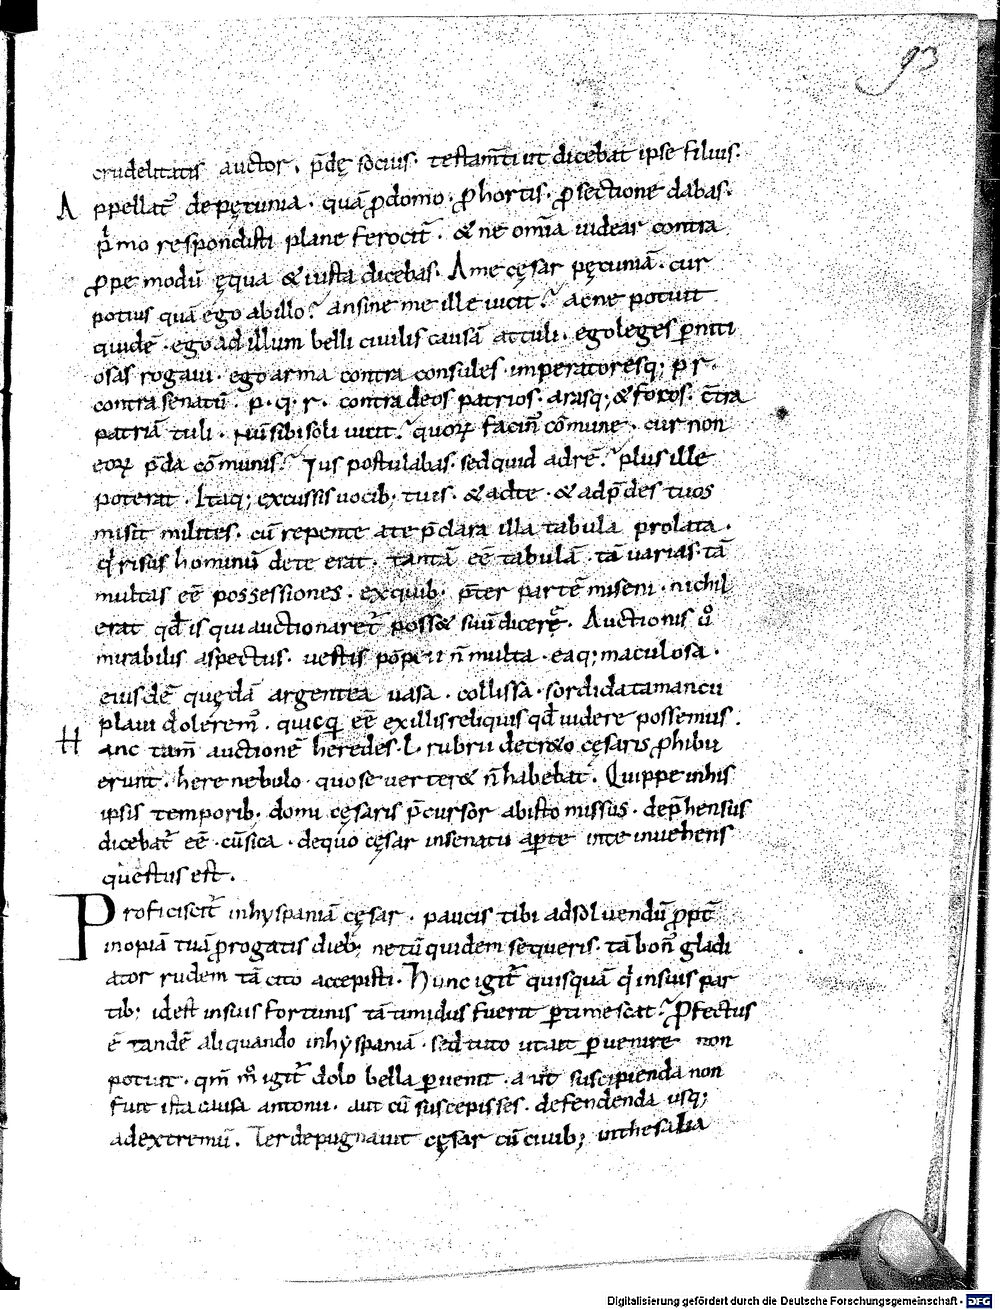 93
crudelitatis auctor. p̄dę socius. testam̄ti ut dicebat ipse filius.
A ppellat̄ de pęcunia. quā ꝓ domo. ꝓ hortis. ꝓ sectione dabas.
p̄mo respondisti plane ferocit̄. & ne om̄ia uidear contra
ꝓpe modū ęqua & iusta dicebas. A me cęsar pęcuniā. cur
potius quā ego ab illo? an sine me ille uicit? ac ne potuit
quidē. ego ad illum belli ciuilis causā attuli. ego leges ꝑniti
osas rogaui. ego arma contra consules imperatoresq; p r.
contra senatū. p. q. r. contra deos patrios. arasq; & focos. c̄tra
patriā tuli. Nū sibi soli uicit? quoꝝ facin̄ cōmune. cur non
eoꝝ p̄da cōmunis? Ius postulabas. sed quid ad rē? plus ille
poterat. Itaq; excussis uocib; tuis. & ad te. & ad p̄des tuos
misit milites. cū repente a te p̄clara illa tabula prolata.
qͥ risus hominū de te erat. tantā eē tabulā. tā uarias. tā
multas eē possessiones. ex quib. p̄ter partē miseni. nichil
erat qd̄ is qui auctionaret̄ posset suū dicerę. Auctionis ū
mirabilis aspectus. uestis pōpeii n̄ multa. eaq; maculosa.
eiusdē quędā argentea uasa. collissa. sordidata mancii
plaui dolerem̄. quicq̄ eē ex illis reliquis qd̄ uidere possemus.
H anc tam̄ auctionē heredes. L. rubrii decreto cęsaris ꝓhibu
erunt. here nebulo. quo se uerteret n̄ habebat. Quippe in his
ipsis temporib. domi cęsaris p̄cursor ab isto missus. dep̄hensus
dicebat̄ eē. cū sica. de quo cęsar in senatu aꝑte in te inuehens
questus est.
P roficiscit̄ in hyspaniā cęsar. paucis tibi ad soluendū ꝓpt̄
inopiā tuā ꝓrogatis dieb; ne tū quidem sequeris. tā bon̄ gladi
ator rudem tā cito accepisti. Hunc igit̄ quisquā qͥ in suis par
tib; id est in suis fortunis tā timidus fuerit ꝑtimescat? ꝓfectus
ē tandē aliquando in hyspaniā. sed tuto ut ait ꝑuenire non
potuit. qm̄ m̊ igit̄ dolobella ꝑuenit. aut suscipienda non
fuit ista causa antoni. aut cū suscepisses. defendenda usq;
ad extremū. Ter depugnauit cęsar cū ciuib; in thesalia
Digitalisierung gefördert durch die Deutsche Forschungsgemeinschaft - DFG